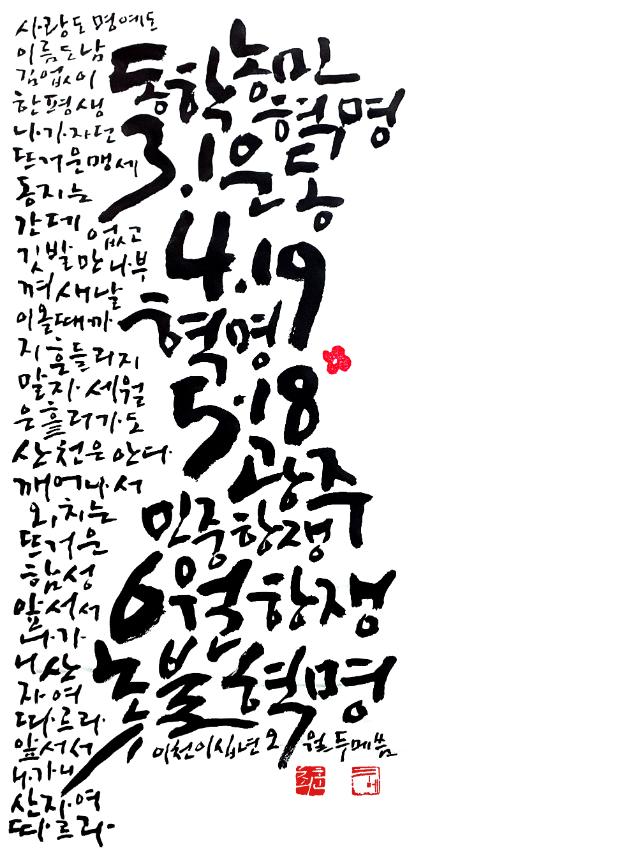 동학농민
혁명
3.1운동
4.19
혁명
5.18
광주
민중항쟁
6월항쟁
촛불혁명
사랑도 명예도
이름도 남
김없이
한평생
나가자던
뜨거운맹세
동지는
간데 없고
깃발만 나부
껴 새날
이올때까
지 흔들리지
말자 세월
은 흘러가도
산천은 안다
깨어나서
외치는
뜨거운
함성
앞서서
나가
니 산
자여
따르라
앞서서
나가니
산자여
따르라
이천이십년 오월 두메씀